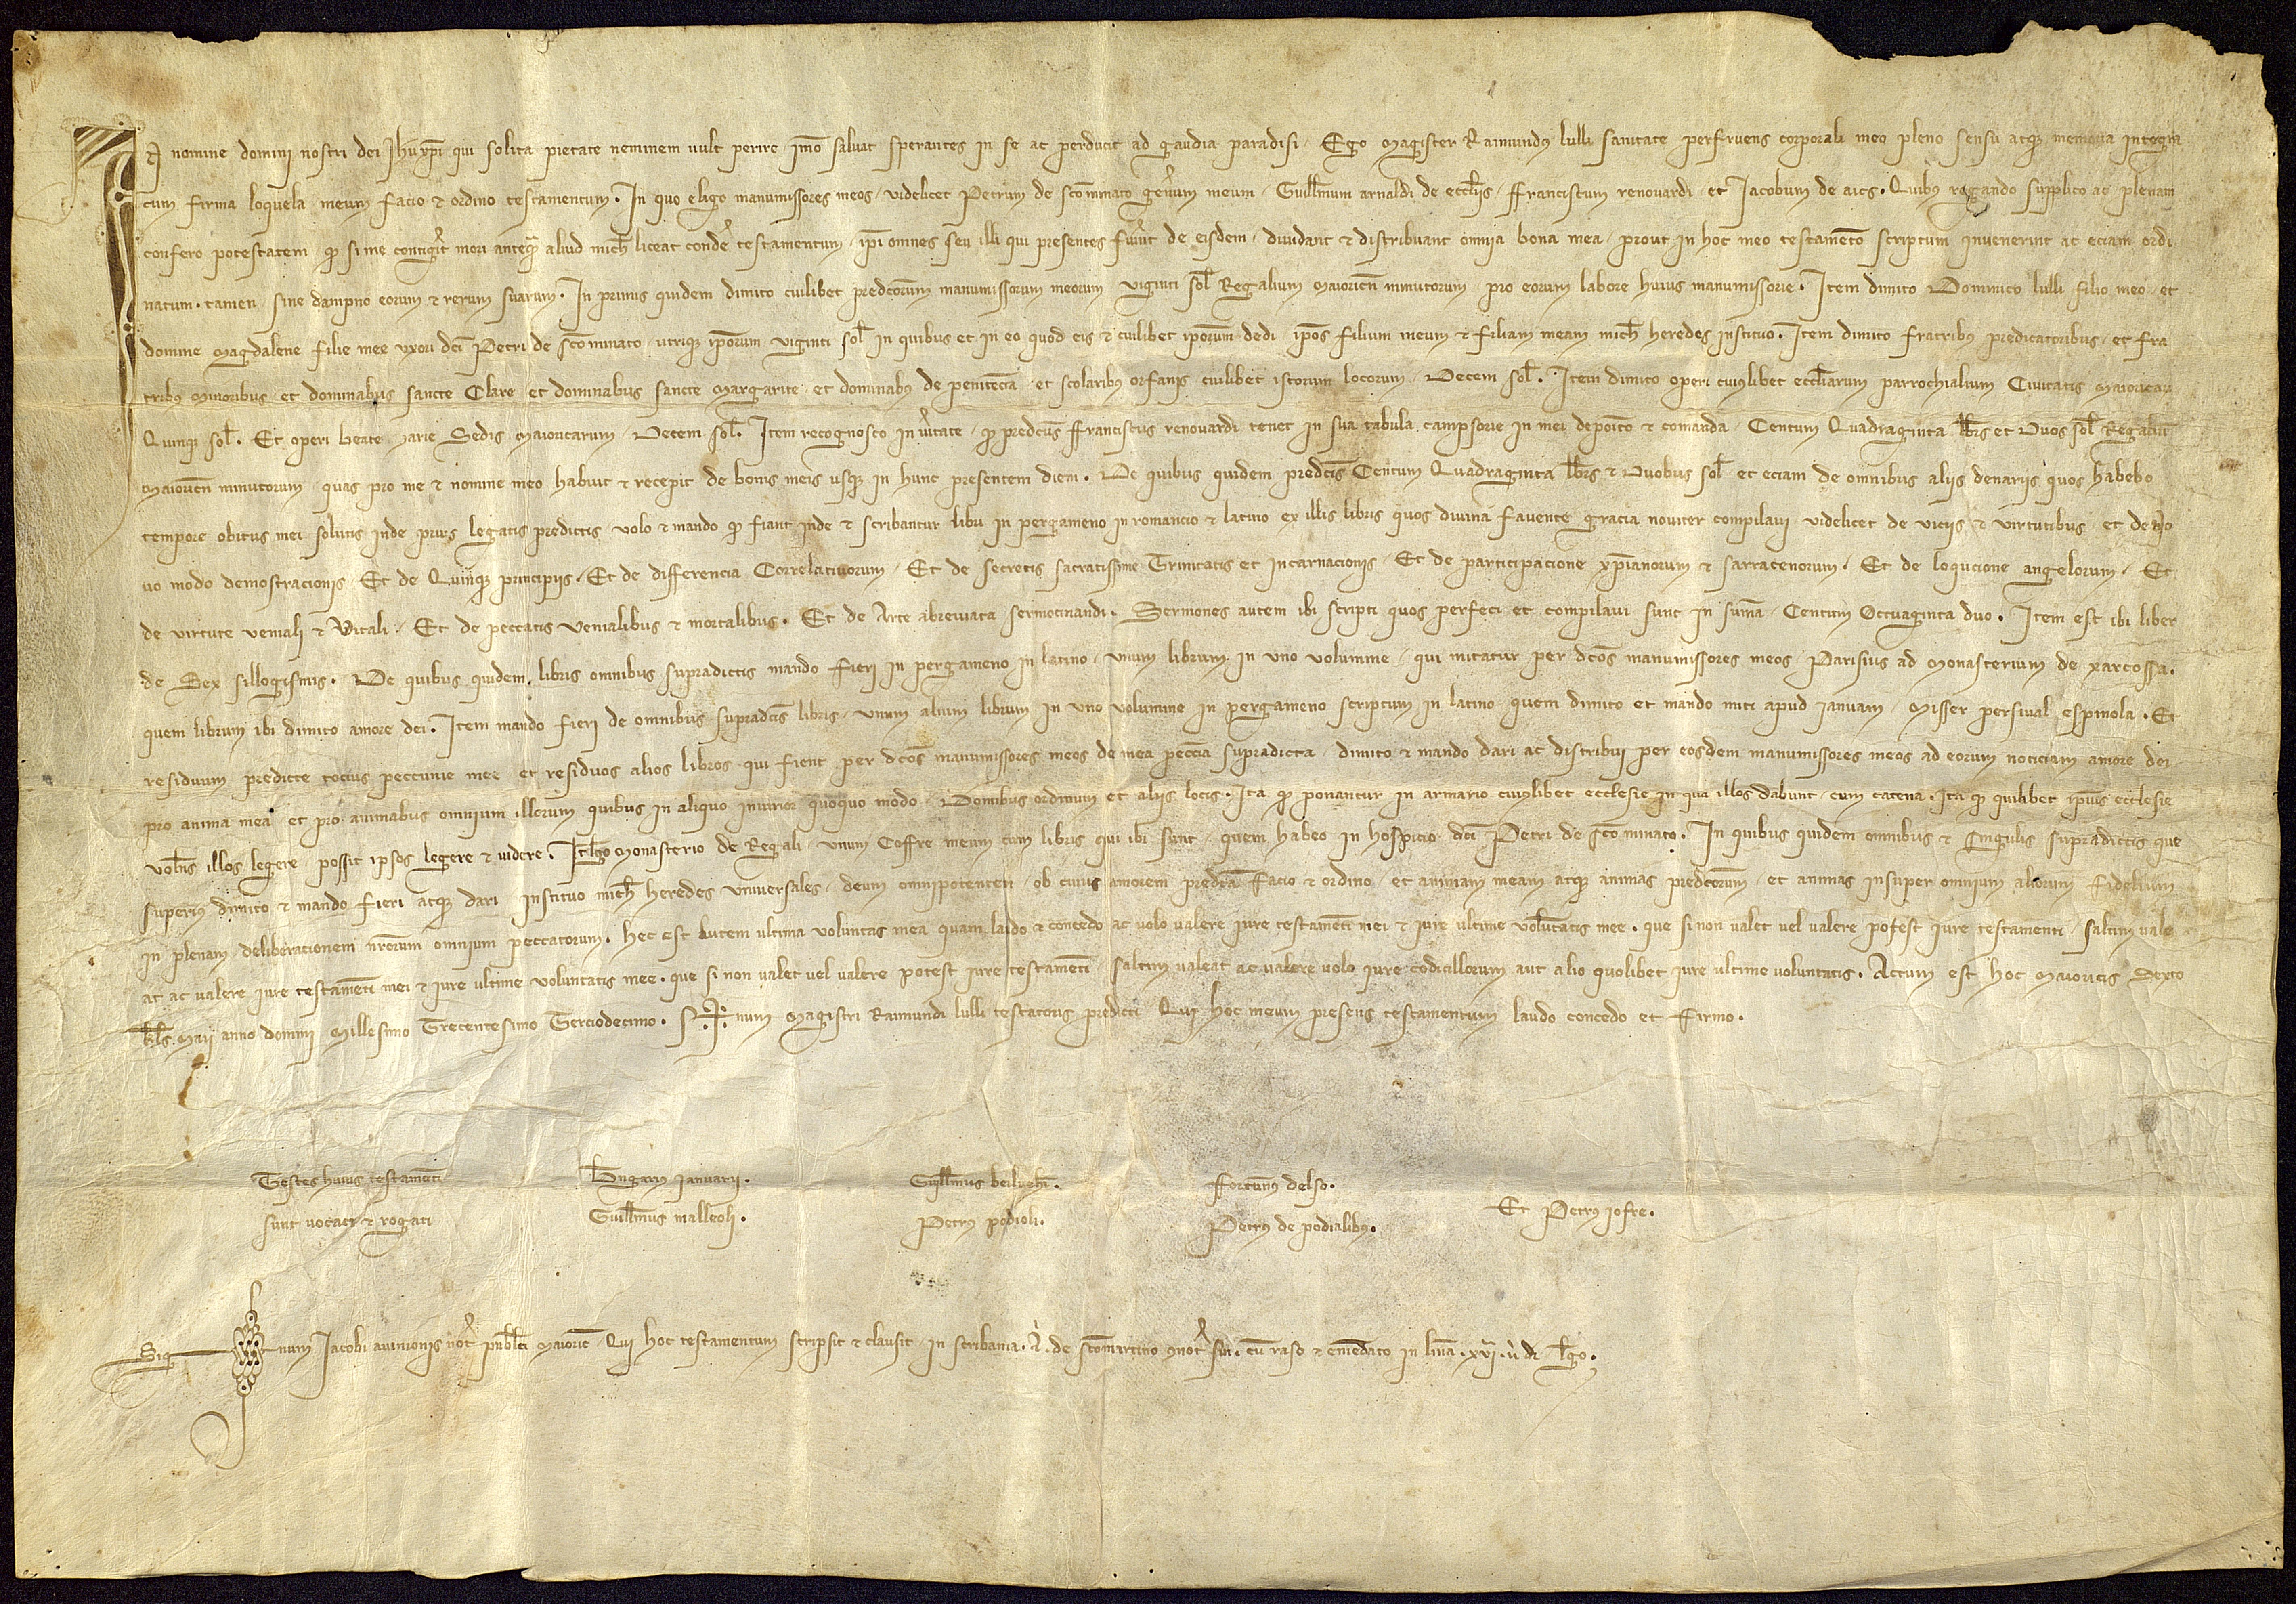 In nomine domini nostri dei Jhu xpi qui solita pietate neminem vult perire imo salvat sperantes in se ac perducit ad gaudia paradisi. Ego Magister Raimundus lulli sanitate perfruens corporali meo pleno sensu atque memoria integra
cum firma loquela meum facio et ordino testamentum. In quo eligo manumissores meos videlicet Petrum de scominato generum meum. Guillmum arnaldi de ecclis. ffranciscum renovardi et Jacobum de aics. Quibus rogando supplico ac plenam
confero potestatem qd si me contigerit mori anteqm aliud mich liceat condere testamentum ipi omnes seu illi qui presentes fuerint de eisdem dividant et distribuant omnia bona mea prout in hoc meo testamento scriptum invenerint ac eciam ordi
natum. tamen sine dampno eorum et rerum suarum. In primis quidem dimito cuilibet predcorum manumissorum meorum viginti sol Regalium maioricen minutorum pro eorum labore huius manumissorie. Item dimito Dominico lulli filio meo et
domine Magdalene filie mee uxori dci Petri de scominato utrique iporum viginti sol in quibus et in eo quod eis et cuilibet iporum dedi ipos filium meum et filiam meam mich heredes instituo. Item dimito fratribus predicatoribus et fra
tribus minoribus et dominabus sancte Clare et dominabus sancte Margarite et dominabus de penitecia et scolaribus orfanis cuilibet istorum locorum Decem sol. Item dimito operi cuiuslibet eccliarum parrochialium Civitatis maioricarum
Quinque sol. Et operi beate marie Sedis maioricarum Decem sol. Item recognosco in veritate qd predcus ffranciscus renovardi tenet in sua tabula campsorie in mei deposito et comanda Centum Quadraginta lbrs et Duos sol Regalium
maioricen minutorum quas pro me et nomine meo habuit et recepit de bonis meis usque in hunc presentem diem. De quibus quidem predcis Centum Quadraginta lbris et Duobus sol et eciam de omnibus aliis denariis quos habebo
tempore obitus mei solutis inde prius legatis predictis volo et mando qd fiant inde et scribantur libri in pergameno in romancio et latino ex illis libris quos divina favente gracia noviter compilavi videlicet de viciis et virtutibus et de no
vo modo demostracionis. Et de Quinque principiis. Et de differencia Correlativorum. Et de secretis sacratissime Trinitatis et incarnacionis. Et de participacione xpianorum et sarracenorum. Et de loqucione angelorum. Et
de virtute veniali et Vitali. Et de peccatis Venialibus et mortalibus. Et de Arte abreviata sermocinandi. Sermones autem ibi scripti quos perfeci et compilavi sunt in suma Centum Octuaginta duo. Item est ibi liber
de Sex sillogismis. De quibus quidem libris omnibus supradictis mando fieri in pergameno in latino unum librum in uno volumine qui mitatur per dcos manumissores meos Parisius ad monasterium de xarcossa.
quem librum ibi dimito amore dei. Item mando fieri de omnibus supradcis libris unum alium librum in uno volumine in pergameno scriptum in latino quem dimito et mando miti apud ianuam Misser persival espinola. Et
residuum predicte tocius peccunie mee et residuos alios libros qui fient per dcos manumissores meos de mea peccia supradicta dimito et mando dari ac distribui per eosdem manumissores meos ad eorum noticiam amore dei
pro anima mea et pro animabus omnium illorum quibus in aliquo iniurior quoquo modo Domibus ordinum et aliis locis. Ita qd ponantur in armario cuiuslibet ecclesie in qua illos dabunt cum catena. Ita qd quilibet ipius ecclesie
volens illos legere possit ipsos legere et videre. It lego Monasterio de Regali unum Coffre meum cum libris qui ibi sunt quem habeo in hospicio dci Petri de scominato. In quibus quidem omnibus et singulis supradictis que
superius dimito et mando fieri atque dari instituo mich heredes universales deum omnipotentem ob cuius amorem predca facio et ordino et animam meam atque animas predcorum et animas insuper omnium aliorum fidelium
in plenam deliberacionem nrorum omnium peccatorum. hec est autem ultima voluntas mea quam laudo et concedo ac volo valere iure testamenti mei et iure ultime voluntatis mee. que si non valet vel valere potest iure testamenti saltim vale
at ac valere iure testamenti mei et iure ultime voluntatis mee. que si non valet vel valere potest iure testamenti saltim valeat ac valere volo iure codicillorum aut alio quolibet iure ultime voluntatis. Actum est hoc maioricis Sexto
kls Maii anno domini Millesimo Trecentesimo Terciodecimo. Sig+num Magistri Raimundi lulli testatoris predicti Qui hoc meum presens testamentum laudo concedo et firmo.
Testes huius testamenti
sunt vocati et rogati
Bngarius Januarii.
Guillmus malleoli.
Guillmus
Petrus podioli.
ffortunius delso.
Petrus de podialibus.
Et Petrus iofre.
Sig num Jacobi avinionis not publici maioric Qui hoc testamentum scripsit et clausit in scribania de scomartino cum raso et emedato in linea .xvi. u di lego.